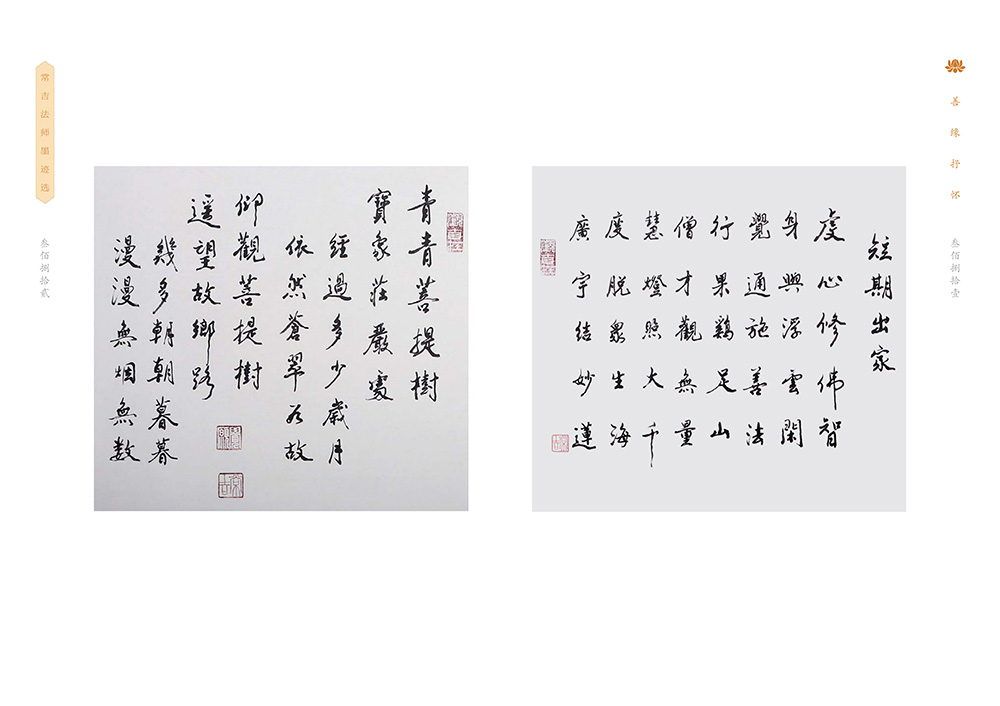 善缘抒怀
叁佰捌拾壹
短期出家
虔心修佛智
身與浮雲閑
覺通施善法
行果鷄足山
僧才觀無量
慧燈照大千
度脱眾生海
廣宇結妙蓮
青青菩提樹
寶象莊嚴處
經過多少歲月
依然蒼翠如故
仰觀菩提樹
遥望故鄉路
幾多朝朝暮暮
漫漫無烟無数
常吉法师墨迹选
叁佰捌拾贰